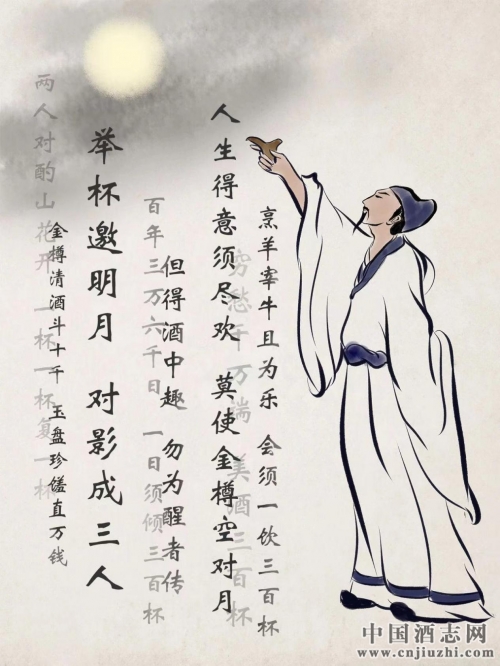 烹羊宰牛且为乐 会须一饮三百杯
穷愁千万端 美酒三百杯
人生得意须尽欢 莫使金樽空对月
但得酒中趣 勿为醒者传
百年三万六千日 一日须倾三百杯
举杯邀明月 对影成三人
金樽清酒斗十千 玉盘珍馐直万钱
两人对酌山花开 一杯一杯复一杯
中国酒志网
www.cnjiuzhi.com